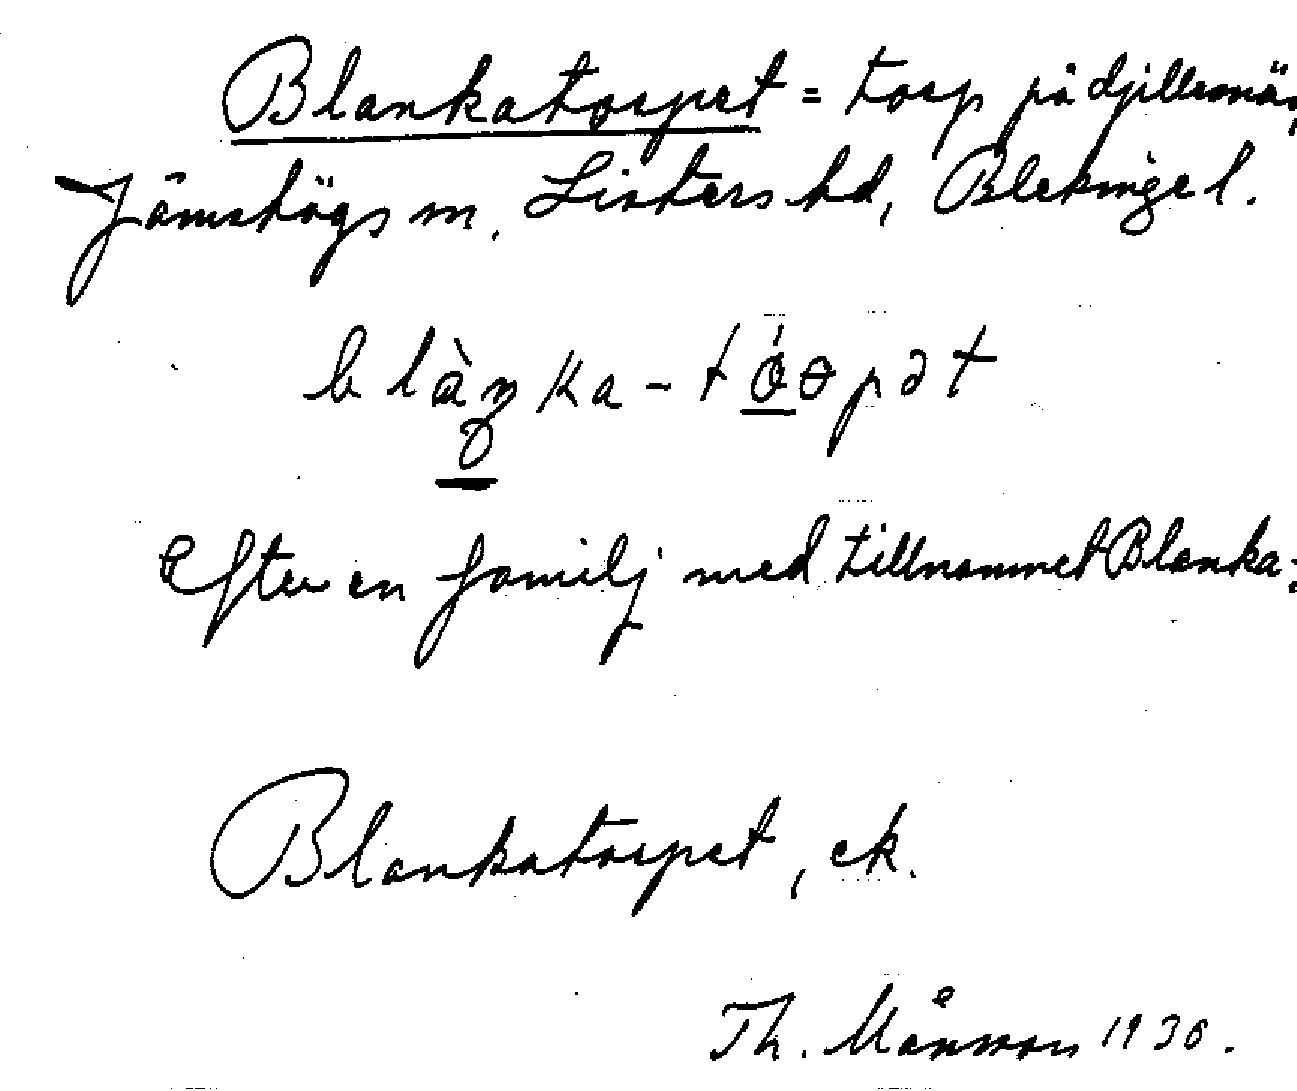 Blankatorpet = torp på djillernäs,
Jämshögs sn, Listers hd, Blekinge l.
Efter en familj med tillnamnet Blanka:
Blankatorpet, ek.
Th. Månsson 1930.